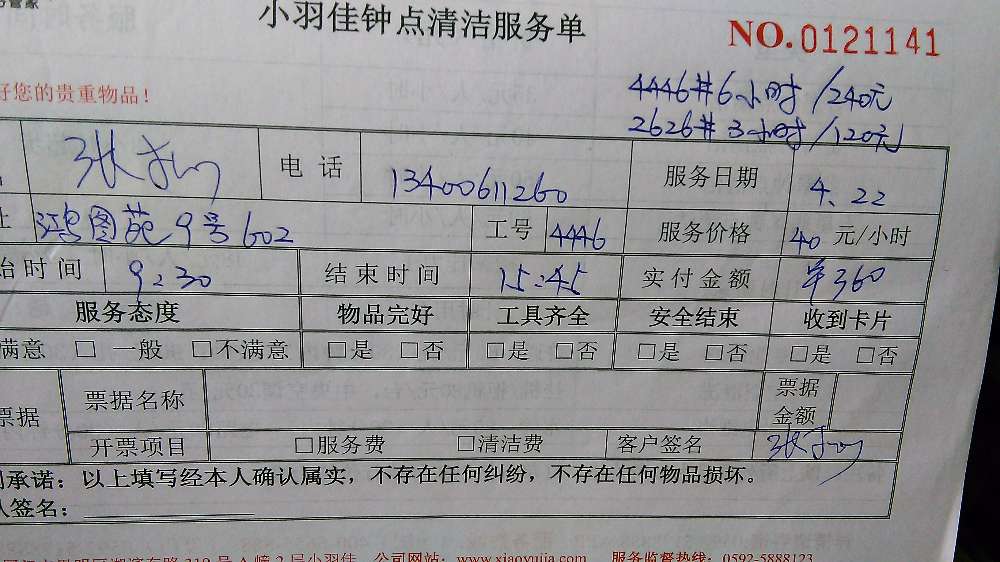 管家
小羽佳钟点清洁服务单
NO.0121141
好您的贵重物品！
4446# 6小时/240元
2626# 3小时/120元
电话 13400611260 服务日期 4.22
址 鸿图苑9号602 工号 4446 服务价格 40 元/小时
始时间 9:30 结束时间 15:45 实付金额 ￥360
服务态度 物品完好 工具齐全 安全结束 收到卡片
满意 □ 一般 □不满意 □是 □否 □是 □否 □是 □否 □是 □否
票据 票据名称 票据金额
开票项目 □服务费 □清洁费 客户签名
承诺：以上填写经本人确认属实，不存在任何纠纷，不存在任何物品损坏。
人签名：
2层小羽佳 公司网站：www.xiaoyujia.com 服务监督热线：0592-5888123